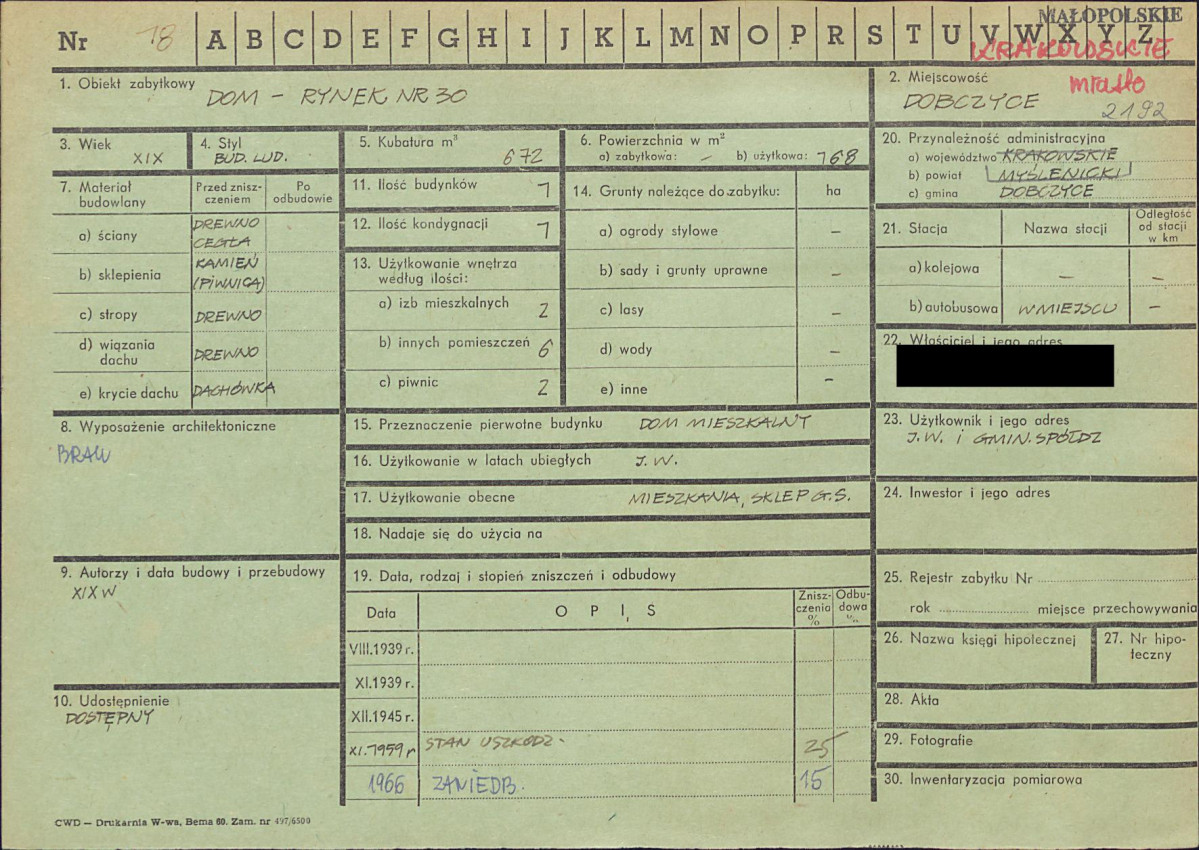 Nr 18 A B C D E F G H I J K L M N O P R S T U V W X Y Z
MAŁOPOLSKIE
KRAKOWSKIE
1. Obiekt zabytkowy DOM – RYNEK NR 30
2. Miejscowość miasto
DOBCZYCE 2192
3. Wiek XIX
4. Styl BUD. LUD.
5. Kubatura m³ 672
6. Powierzchnia w m²
a) zabytkowa: – b) użytkowa: 168
7. Materiał budowlany
Przed zniszczeniem
Po odbudowie
a) ściany DREWNO CEGŁA
b) sklepienia KAMIEŃ (PIWNICA)
c) stropy DREWNO
d) wiązania dachu DREWNO
e) krycie dachu DACHÓWKA
8. Wyposażenie architektoniczne
BRAK
9. Autorzy i data budowy i przebudowy
XIX W
10. Udostępnienie
DOSTĘPNY
11. Ilość budynków 1
12. Ilość kondygnacji 1
13. Użytkowanie wnętrza według ilości:
a) izb mieszkalnych 2
b) innych pomieszczeń 6
c) piwnic 2
14. Grunty należące do zabytku: ha
a) ogrody stylowe –
b) sady i grunty uprawne –
c) lasy –
d) wody –
e) inne –
15. Przeznaczenie pierwotne budynku DOM MIESZKALNY
16. Użytkowanie w latach ubiegłych J.W.
17. Użytkowanie obecne MIESZKANIA, SKLEP G.S.
18. Nadaje się do użycia na
19. Data, rodzaj i stopień zniszczeń i odbudowy
Data OPIS Zniszczenia % Odbudowa %
VIII.1939 r.
XI.1939 r.
XII.1945 r.
XI.1959 r STAN USZKODZ. 25
1966 ZANIEDB. 15
20. Przynależność administracyjna
a) województwo KRAKOWSKIE
b) powiat MYŚLENICKI
c) gmina DOBCZYCE
21. Stacja Nazwa stacji Odległość od stacji w km
a) kolejowa – –
b) autobusowa W MIEJSCU –
22. Właściciel i jego adres
23. Użytkownik i jego adres
J.W. i GMIN. SPÓŁDZ
24. Inwestor i jego adres
25. Rejestr zabytku Nr
rok miejsce przechowywania
26. Nazwa księgi hipotecznej
27. Nr hipoteczny
28. Akta
29. Fotografie
30. Inwentaryzacja pomiarowa
CWD — Drukarnia W-wa, Bema 60. Zam. nr 497/6500